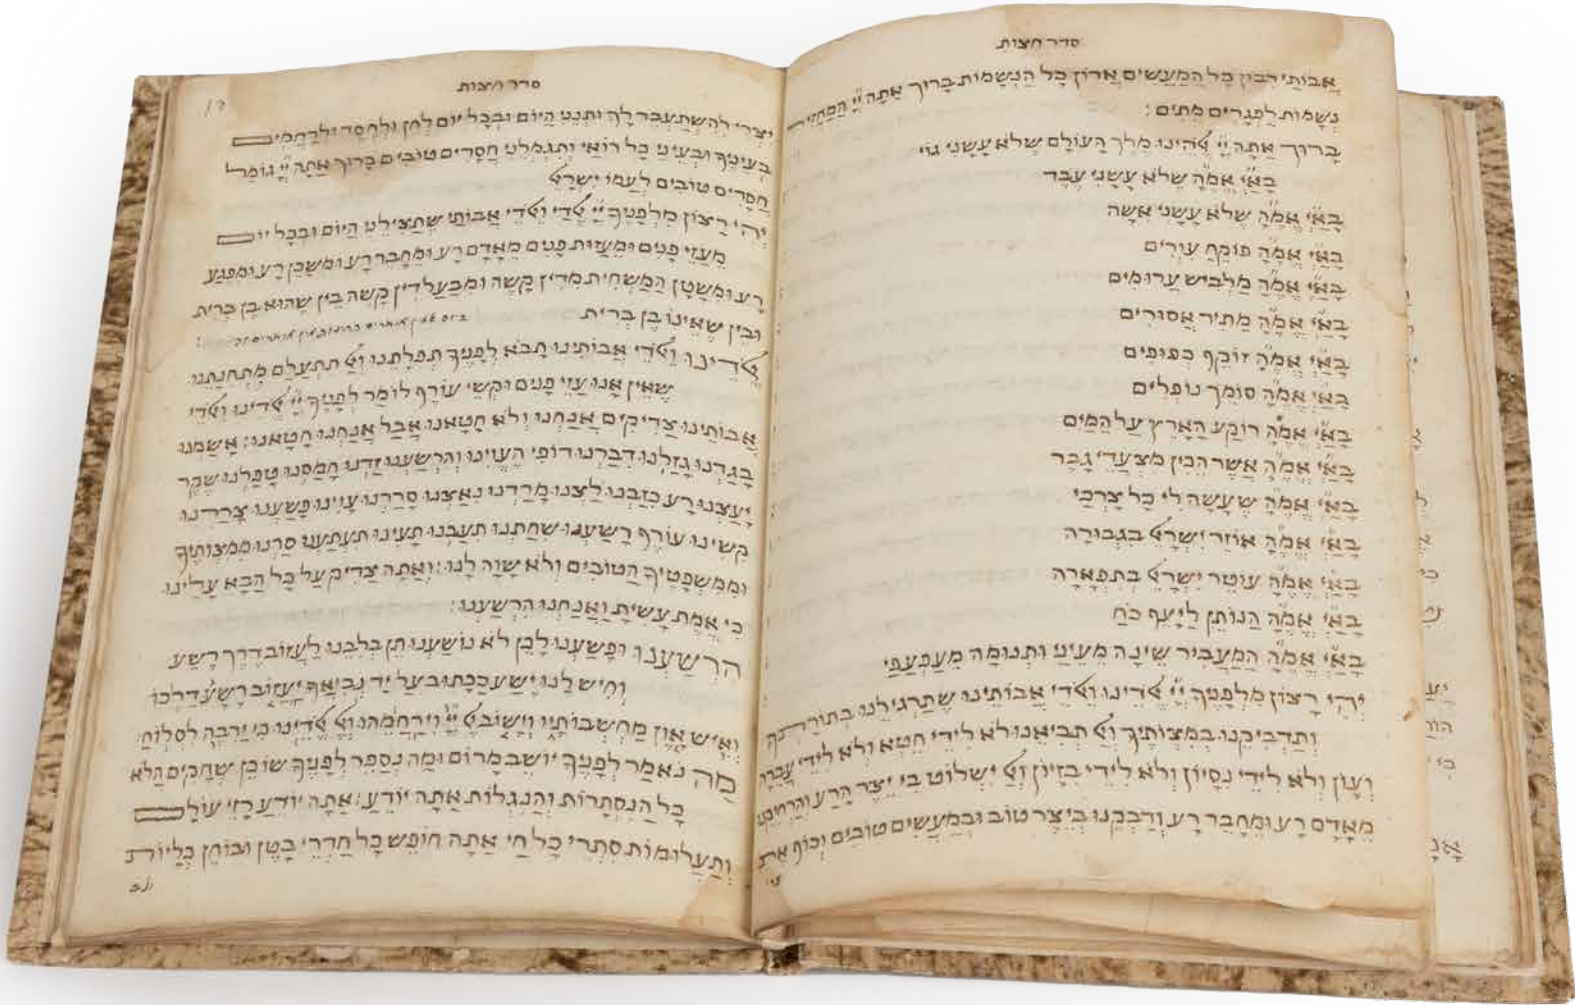 סדר חצות
אֲבוֹתַי רִבּוֹן כָּל הַמַּעֲשִׂים אֲדוֹן כָּל הַנְּשָׁמוֹת בָּרוּךְ אַתָּה יְיָ הַמַּחֲזִיר
נְשָׁמוֹת לִפְגָרִים מֵתִים :
בָּרוּךְ אַתָּה יְיָ אֱלֹהֵינוּ מֶלֶךְ הָעוֹלָם שֶׁלֹּא עָשַׂנִי גוֹי
בָּאַ״יְ אֱמֶ״הָ שֶׁלֹּא עָשַׂנִי עֶבֶד
בָּאַ״יְ אֱמֶ״הָ שֶׁלֹּא עָשַׂנִי אִשָּׁה
בָּאַ״יְ אֱמֶ״הָ פוֹקֵחַ עִוְרִים
בָּאַ״יְ אֱמֶ״הָ מַלְבִּישׁ עֲרוּמִים
בָּאַ״יְ אֱמֶ״הָ מַתִּיר אֲסוּרִים
בָּאַ״יְ אֱמֶ״הָ זוֹקֵף כְּפוּפִים
בָּאַ״יְ אֱמֶ״הָ סוֹמֵךְ נוֹפְלִים
בָּאַ״יְ אֱמֶ״הָ רוֹקַע הָאָרֶץ עַל הַמַּיִם
בָּאַ״יְ אֱמֶ״הָ אֲשֶׁר הֵכִין מִצְעֲדֵי גָבֶר
בָּאַ״יְ אֱמֶ״הָ שֶׁעָשָׂה לִי כָּל צָרְכִּי
בָּאַ״יְ אֱמֶ״הָ אוֹזֵר יִשְׂרָאֵל בִּגְבוּרָה
בָּאַ״יְ אֱמֶ״הָ עוֹטֵר יִשְׂרָאֵל בְּתִפְאָרָה
בָּאַ״יְ אֱמֶ״הָ הַנּוֹתֵן לַיָּעֵף כֹּחַ
בָּאַ״יְ אֱמֶ״הָ הַמַּעֲבִיר שֵׁינָה מֵעֵינַי וּתְנוּמָה מֵעַפְעַפָּי
יְהִי רָצוֹן מִלְּפָנֶיךָ יְיָ אֱלֹדֵינוּ וֵאלֹדֵי אֲבוֹתֵינוּ שֶׁתַּרְגִּילֵנוּ בְּתוֹרָתֶךָ
וְתַדְבִּיקֵנוּ בְּמִצְוֹתֶיךָ וְאַל תְּבִיאֵנוּ לֹא לִידֵי חֵטְא וְלֹא לִידֵי עֲבֵרָה
וְעָוֹן וְלֹא לִידֵי נִסָּיוֹן וְלֹא לִידֵי בִזָּיוֹן וְאַל יִשְׁלוֹט בִּי יֵצֶר הָרַע וְהַרְחִיקֵנוּ
מֵאָדָם רָע וּמֵחָבֵר רָע וְדַבְּקֵנוּ בְּיֵצֶר טוֹב וּבְמַעֲשִׂים טוֹבִים וְכוֹף אֶת
סדר חצות
יִצְרִי לְהִשְׁתַּעְבֵּד לָךְ וּתְנֵנִי הַיּוֹם וּבְכָל יוֹם לְחֵן וּלְחֶסֶד וּלְרַחֲמִים
בְּעֵינֶיךָ וּבְעֵינֵי כָל רוֹאַי וְתִגְמְלֵנִי חֲסָדִים טוֹבִים בָּרוּךְ אַתָּה יְיָ גּוֹמֵל
חֲסָדִים טוֹבִים לְעַמּוֹ יִשְׂרָאֵל
יְהִי רָצוֹן מִלְּפָנֶיךָ יְיָ אֱלֹדַי וֵאלֹדֵי אֲבוֹתַי שֶׁתַּצִּילֵנִי הַיּוֹם וּבְכָל יוֹם
מֵעַזֵּי פָנִים וּמֵעַזּוּת פָּנִים מֵאָדָם רָע וּמֵחָבֵר רָע וּמִשָּׁכֵן רָע וּמִפֶּגַע
רָע וּמִשָּׂטָן הַמַּשְׁחִית מִדִּין קָשֶׁה וּמִבַּעַל דִּין קָשֶׁה בֵּין שֶׁהוּא בֶּן בְּרִית
וּבֵין שֶׁאֵינוֹ בֶּן בְּרִית
אֱלֹדֵינוּ וֵאלֹדֵי אֲבוֹתֵינוּ תָּבֹא לְפָנֶיךָ תְּפִלָּתֵנוּ וְאַל תִּתְעַלַּם מִתְּחִנָּתֵנוּ
שֶׁאֵין אָנוּ עַזֵּי פָנִים וּקְשֵׁי עוֹרֶף לוֹמַר לְפָנֶיךָ יְיָ אֱלֹדֵינוּ וֵאלֹדֵי
אֲבוֹתֵינוּ צַדִּיקִים אֲנַחְנוּ וְלֹא חָטָאנוּ אֲבָל אֲנַחְנוּ חָטָאנוּ : אָשַׁמְנוּ
בָּגַדְנוּ גָּזַלְנוּ דִּבַּרְנוּ דוֹפִי הֶעֱוִינוּ וְהִרְשַׁעְנוּ זַדְנוּ חָמַסְנוּ טָפַלְנוּ שֶׁקֶר
יָעַצְנוּ רָע כִּזַּבְנוּ לַצְנוּ מָרַדְנוּ נִאַצְנוּ סָרַרְנוּ עָוִינוּ פָּשַׁעְנוּ צָרַרְנוּ
קִשִּׁינוּ עוֹרֶף רָשַׁעְנוּ שִׁחַתְנוּ תִּעַבְנוּ תָּעִינוּ תִּעְתַּעְנוּ סַרְנוּ מִמִּצְוֹתֶיךָ
וּמִמִּשְׁפָּטֶיךָ הַטּוֹבִים וְלֹא שָׁוָה לָנוּ : וְאַתָּה צַדִּיק עַל כָּל הַבָּא עָלֵינוּ
כִּי אֱמֶת עָשִׂיתָ וַאֲנַחְנוּ הִרְשָׁעְנוּ :
הִרְשַׁעְנוּ וּפָשַׁעְנוּ לָכֵן לֹא נוֹשָׁעְנוּ תֵּן בְּלִבֵּנוּ לַעֲזוֹב דֶּרֶךְ רֶשַׁע
וְחִישׁ לָנוּ יֶשַׁע כַּכָּתוּב עַל יַד נְבִיאֶךָ יַעֲזוֹב רָשָׁע דַּרְכּוֹ
וְאִישׁ אָוֶן מַחְשְׁבוֹתָיו וְיָשׁוֹב אֶל יְיָ וִירַחֲמֵהוּ וְאֶל אֱלֹדֵינוּ כִּי יַרְבֶּה לִסְלוֹחַ
מַה נֹּאמַר לְפָנֶיךָ יוֹשֵׁב מָרוֹם וּמַה נְּסַפֵּר לְפָנֶיךָ שׁוֹכֵן שְׁחָקִים הֲלֹא
כָּל הַנִּסְתָּרוֹת וְהַנִּגְלוֹת אַתָּה יוֹדֵעַ : אַתָּה יוֹדֵעַ רָזֵי עוֹלָם
וְתַעֲלוּמוֹת סִתְרֵי כָל חַי אַתָּה חוֹפֵשׂ כָּל חַדְרֵי בָטֶן וּבוֹחֵן כְּלָיוֹת